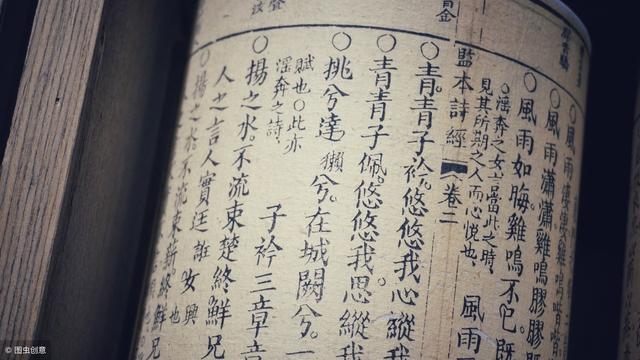 風雨淒淒雞鳴喈喈
○風雨瀟瀟雞鳴膠膠
○風雨如晦雞鳴不已既
○淫奔之女言當此之時
見其所期之人而心悅也
風雨
監本詩經 卷二
○青青子衿。悠悠我心縱我
○青青子佩。悠悠我思。縱我
○挑兮達獺兮。在城闕兮。一
賦也○此亦
淫奔之詩
子衿三章章
○揚之水。不流束楚終鮮兄
人之言人實迋誑女 興也
○揚之水不流束薪。終鮮兄
© 图虫创意